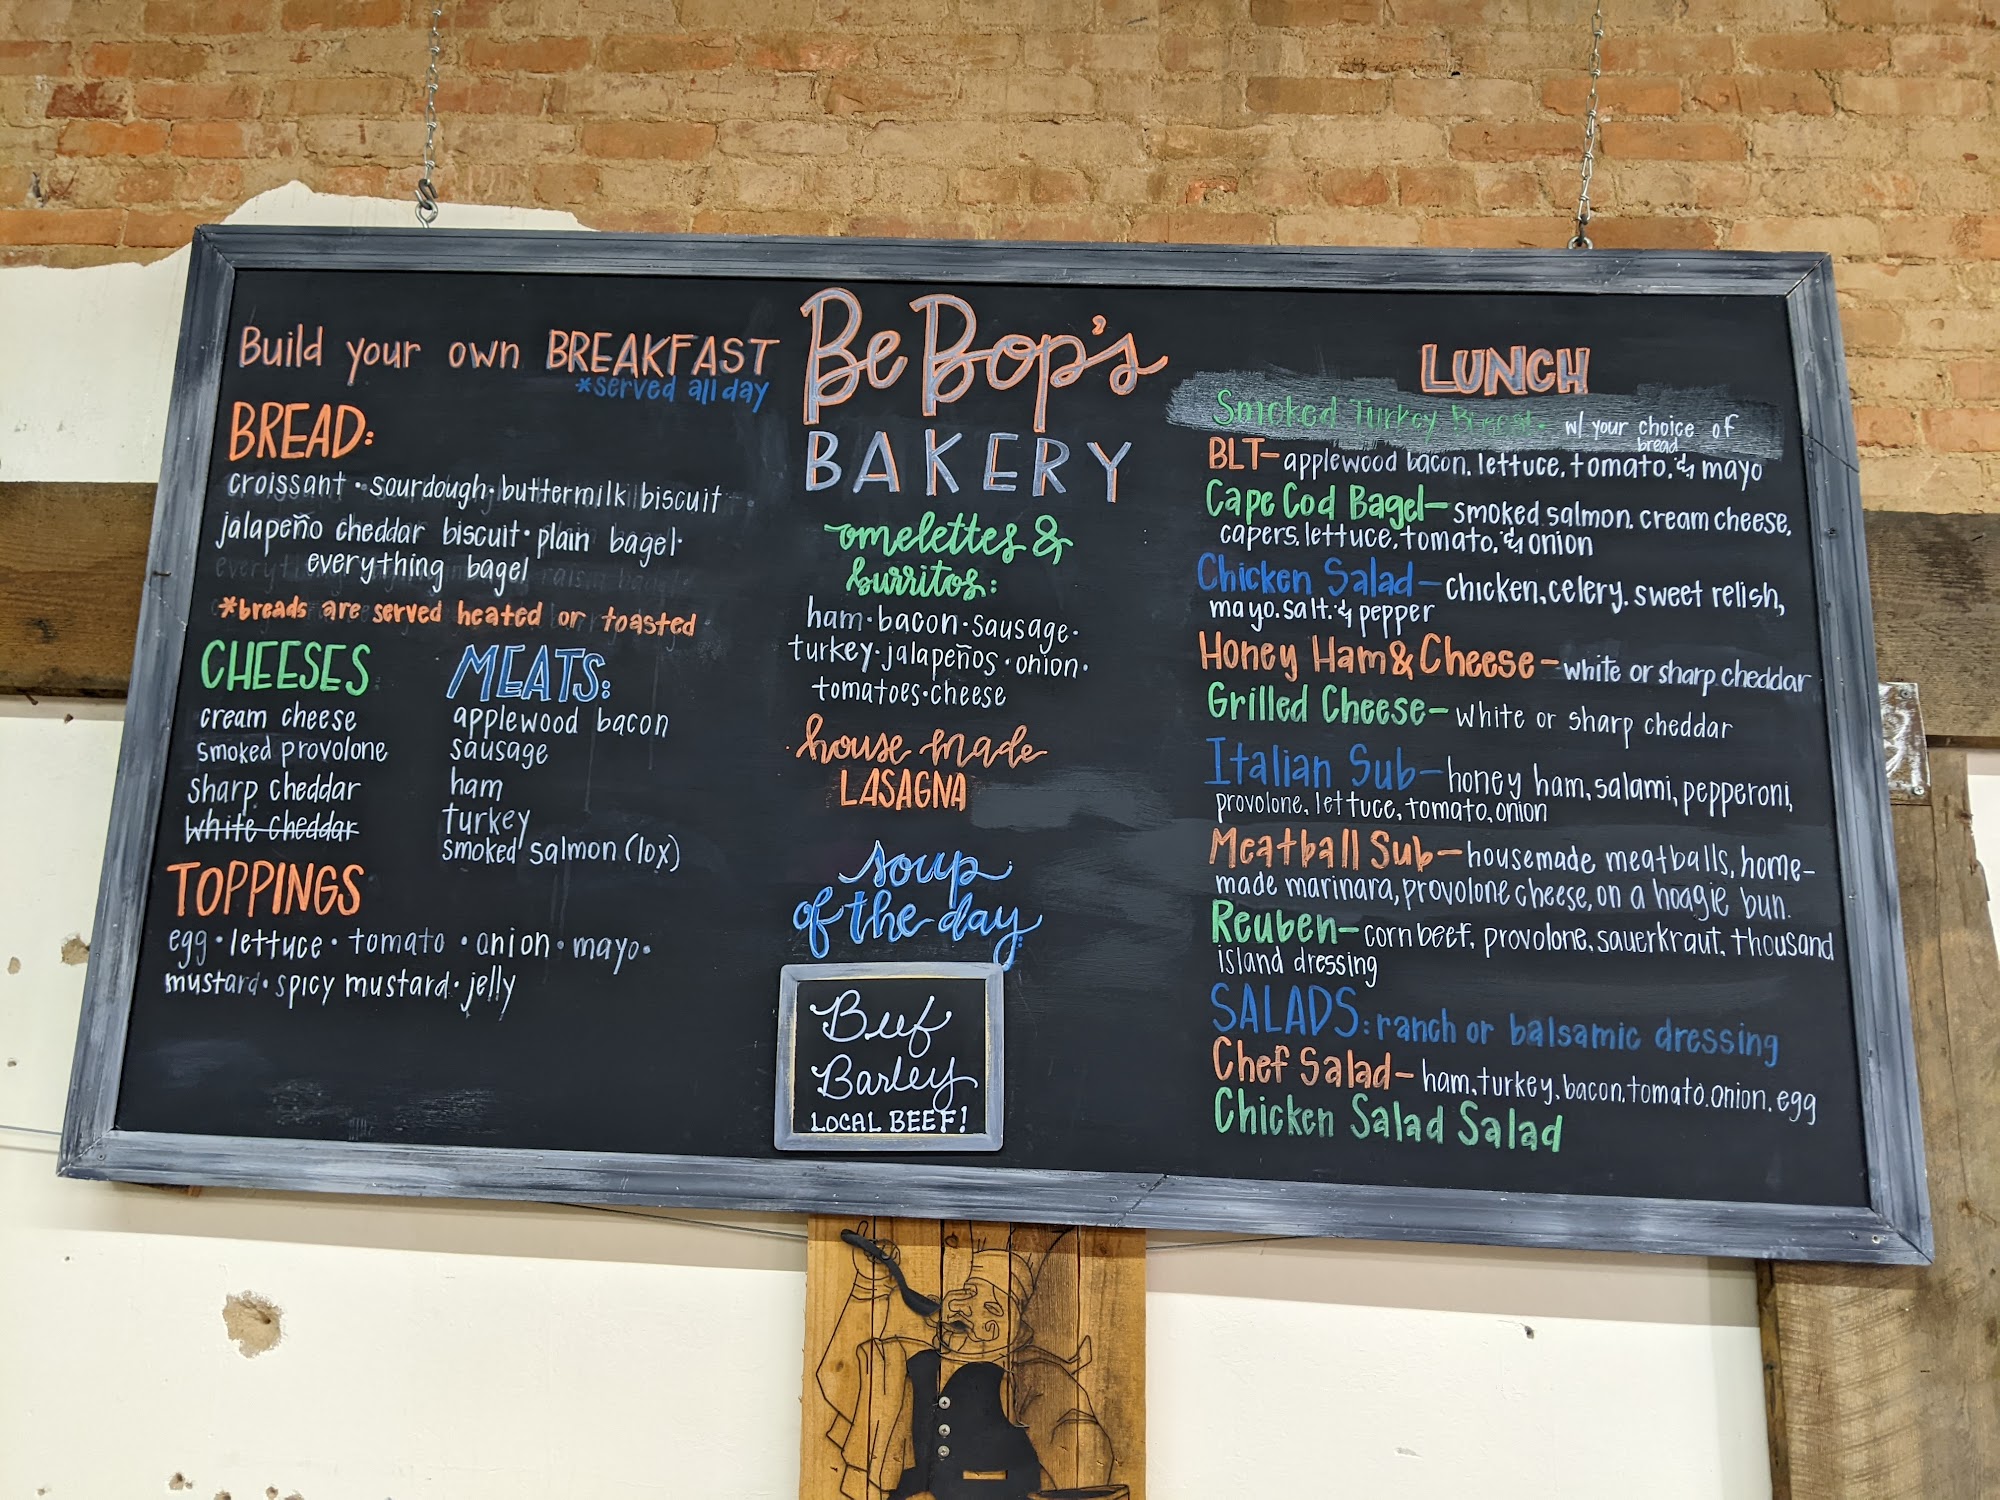 Build your own BREAKFAST
*served all day
BREAD:
croissant · sourdough · buttermilk biscuit
jalapeño cheddar biscuit · plain bagel ·
everything bagel
*breads are served heated or toasted
CHEESES
cream cheese
smoked provolone
sharp cheddar
white cheddar
MEATS:
applewood bacon
sausage
ham
turkey
smoked salmon (lox)
TOPPINGS
egg · lettuce · tomato · onion · mayo ·
mustard · spicy mustard · jelly
BeBop's
BAKERY
omelettes &
burritos:
ham · bacon · sausage ·
turkey · jalapeños · onion ·
tomatoes · cheese
house made
LASAGNA
soup
of the day
Beef
Barley
LOCAL BEEF!
LUNCH
Smoked Turkey Breast- w/ your choice of
bread
BLT- applewood bacon, lettuce, tomato, & mayo
Cape Cod Bagel- smoked salmon, cream cheese,
capers, lettuce, tomato, & onion
Chicken Salad- chicken, celery, sweet relish,
mayo, salt, & pepper
Honey Ham & Cheese- white or sharp cheddar
Grilled Cheese- white or sharp cheddar
Italian Sub- honey ham, salami, pepperoni,
provolone, lettuce, tomato, onion
Meatball Sub- housemade meatballs, home-
made marinara, provolone cheese, on a hoagie bun.
Reuben- corn beef, provolone, sauerkraut, thousand
island dressing
SALADS: ranch or balsamic dressing
Chef Salad- ham, turkey, bacon, tomato, onion, egg
Chicken Salad Salad